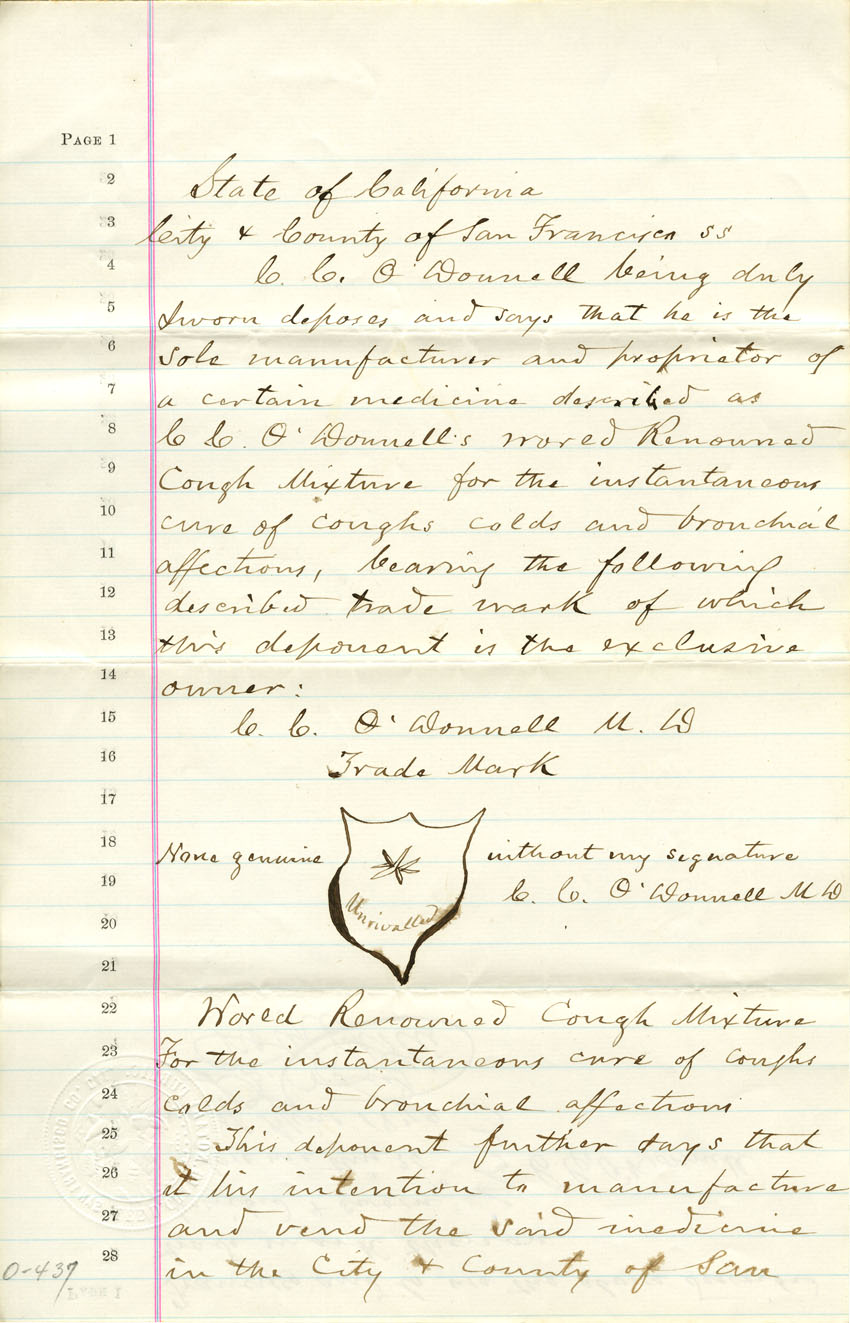 PAGE 1
2 State of California
3 City & County of San Francisco ss
4 C. C. O'Donnell being duly
5 sworn deposes and says that he is the
6 sole manufacturer and proprietor of
7 a certain medicine described as
8 C C. O'Donnell's World Renowned
9 Cough Mixture for the instantaneous
10 cure of coughs colds and bronchial
11 affections, bearing the following
12 described trade mark of which
13 this deponent is the exclusive
14 owner:
15 C. C. O'Donnell M. D
16 Trade Mark
17
18 None genuine without my signature
19 C. C. O'Donnell M D
20 Unrivalled
21
22 World Renowned Cough Mixture
23 For the instantaneous cure of coughs
24 colds and bronchial affections
25 This deponent further says that
26 it his intention to manufacture
27 and vend the said medicine
28 in the City & County of San
0-437